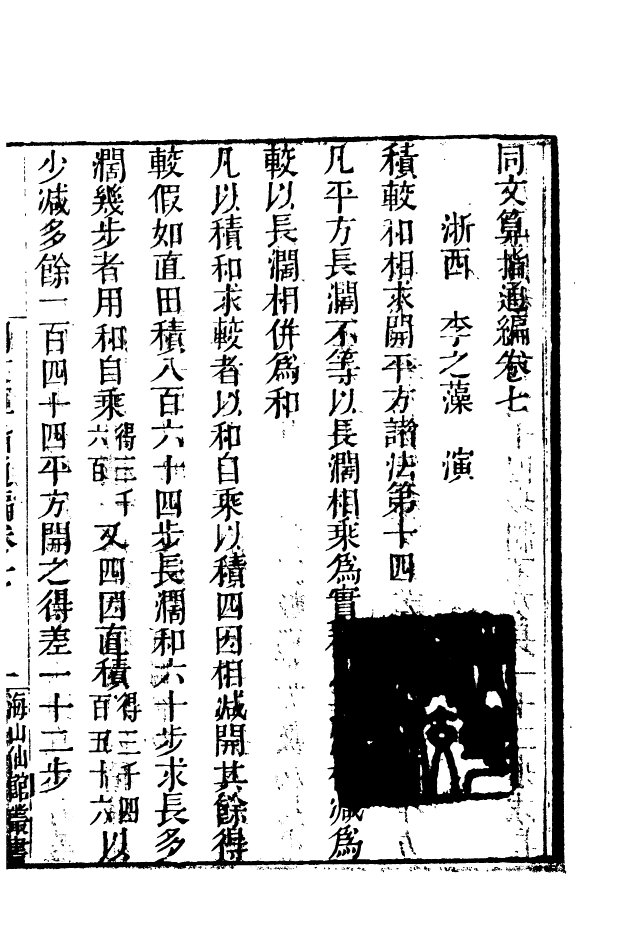 同文算指通編卷七
浙西 李之藻 演
積較和相求開平方諸法第十四
凡平方長濶不等以長濶相乘為實減為
較以長濶相併為和
凡以積和求較者以和自乘以積四因相減開其餘得
較假如直田積八百六十四步長濶和六十步求長多
濶幾步者用和自乘得三千六百又四因直積得三千四百五十六以
少減多餘一百四十四平方開之得差一十二步
海山仙館叢書